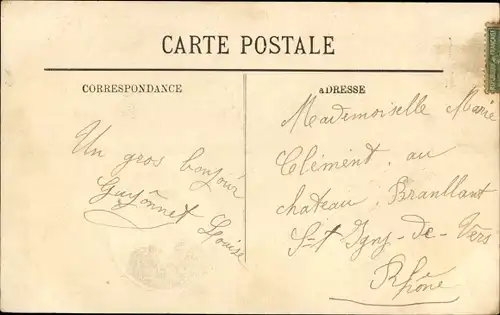 CARTE POSTALE
CORRESPONDANCE
Un gros bonjour
Guyonnet Louise
ADRESSE
Mademoiselle Marie
Clément, au
chateau, Branllant
St Igny-de-Vers
Rhône